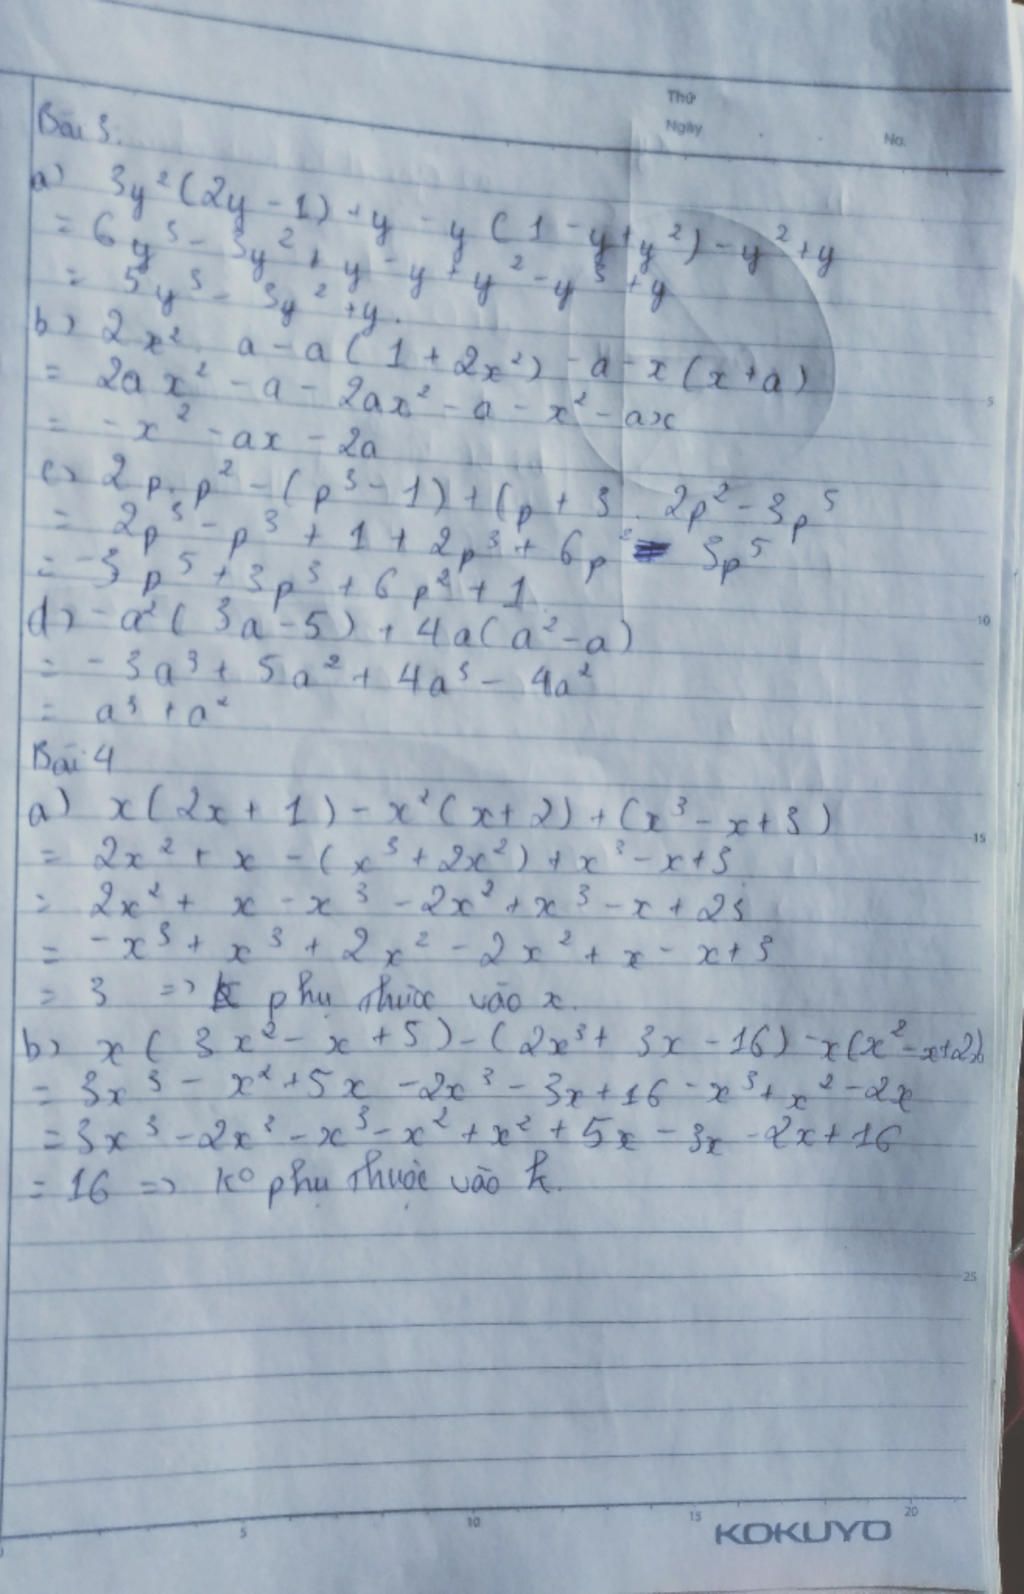 Thứ
Ngày . . No.
Bài 3.
a) 3y²(2y - 1) + y - y(1 - y + y²) - y² + y
= 6y³ - 3y² + y - y + y² - y³ + y
= 5y³ - 3y² + y.
b) 2x². a - a(1 + 2x²) - a - x(x + a)
= 2ax² - a - 2ax² - a - x² - ax
= -x² - ax - 2a
c) 2p.p² - (p³ - 1) + (p + 3. 2p² - 3p⁵
= 2p³ - p³ + 1 + 2p³ + 6p² 3p⁵
= -3p⁵ + 3p³ + 6p² + 1
d) -a²(3a - 5) + 4a(a² - a)
= -3a³ + 5a² + 4a³ - 4a²
= a³ + a²
Bài 4
a) x(2x + 1) - x²(x + 2) + (x³ - x + 3)
= 2x² + x - (x³ + 2x²) + x³ - x + 3
= 2x² + x - x³ - 2x² + x³ - x + 23
= -x³ + x³ + 2x² - 2x² + x - x + 3
= 3 => phụ thuộc vào x.
b) x(3x² - x + 5) - (2x³ + 3x - 16) - x(x² - x + 2)
= 3x³ - x² + 5x - 2x³ - 3x + 16 - x³ + x² - 2x
= 3x³ - 2x³ - x³ - x² + x² + 5x - 3x - 2x + 16
= 16 => K° phụ thuộc vào k.
5
10
15
25
5 10 15 20
KOKUYO